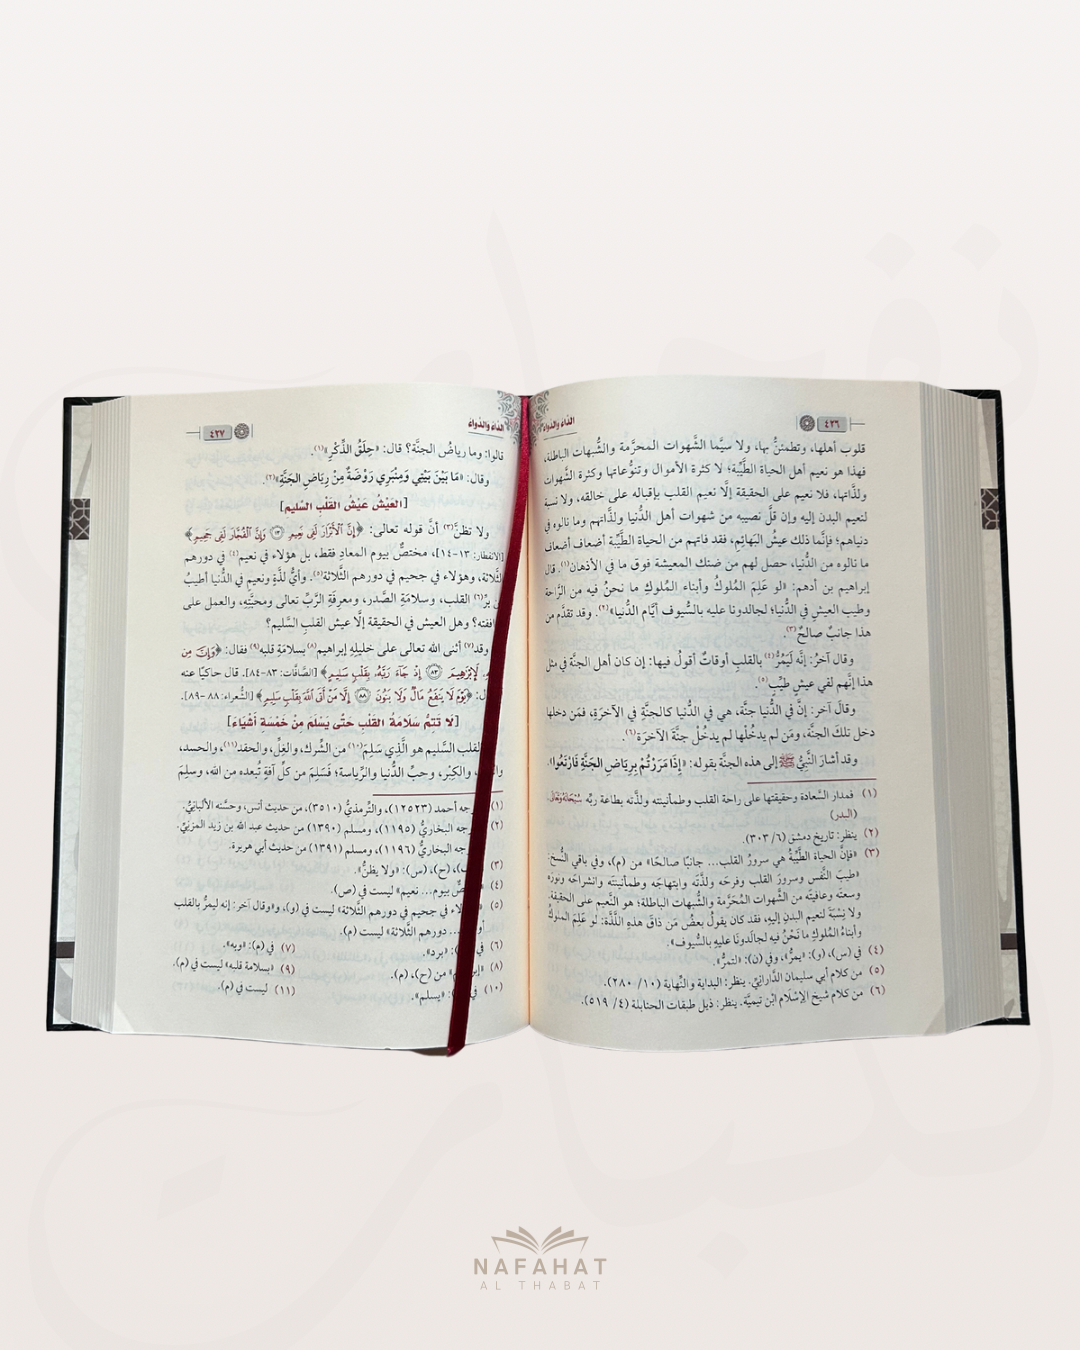 ٤٢٦
الداء والدواء
قلوب أهلها، وتطمئنُّ بها، ولا سيَّما الشَّهوات المحرَّمة والشُّبهات الباطلة،
فهذا هو نعيم أهل الحياة الطَّيِّبة؛ لا كثرة الأموال وتنوُّعاتها وكثرة الشَّهوات
ولذَّاتها، فلا نعيم على الحقيقة إلَّا نعيم القلب بإقباله على خالقه، ولا نسبة
لنعيم البدن إليه وإن قلَّ نصيبه من شهوات أهل الدُّنيا ولذَّاتهم وما نالوه في
دنياهم؛ فإنَّما ذلك عيشُ البَهائِمِ، فقد فاتهم من الحياة الطَّيِّبة أضعاف أضعاف
ما نالوه من الدُّنيا، حصل لهم من ضنك المعيشة فوق ما في الأذهان(١). قال
إبراهيم بن أدهم: «لو عَلِمَ المُلوكُ وأبناء المُلوكِ ما نحنُ فيه من الرَّاحة
وطيب العيشِ في الدُّنيا؛ لجالدونا عليه بالسُّيوف أيَّام الدُّنيا»(٢). وقد تقدَّم من
هذا جانبٌ صالحٌ(٣).
وقال آخرُ: إنَّه لَيَمُرُّ(٤) بالقلبِ أوقاتٌ أقولُ فيها: إن كان أهل الجنَّة في مثل
هذا إنَّهم لفي عيشٍ طيِّبٍ(٥).
وقال آخر: إنَّ في الدُّنيا جنَّة، هي في الدُّنيا كالجنَّةِ في الآخرَةِ، فمَن دخلها
دخل تلكَ الجنَّة، ومَن لم يدخُلْها لم يدخُلْ جنَّةَ الآخرَة(٦).
وقد أشارَ النَّبيُّ ﷺ إلى هذه الجنَّة بقوله: «إِذَا مَرَرْتُمْ بِرِيَاضِ الجَنَّةِ فَارْتَعُوا».
(١) فمدار السَّعادة وحقيقتها على راحة القلب وطمأنينته ولذَّته بطاعة ربِّه سُبْحَانَهُ وَتَعَالَى.
(البدر)
(٢) ينظر: تاريخ دمشق (٦/ ٣٠٣).
(٣) «فإنَّ الحياة الطَّيِّبةَ هي سرورُ القلب... جانبًا صالحًا» من (م)، وفي باقي النُّسخ:
«طيبَ النَّفْس وسرورَ القلب وفرحَه ولذَّتَه وابتهاجَه وطمأنينتَه وانشراحَه ونورَه
وسعتَه وعافيتَه من الشَّهواتِ المُحَرَّمة والشُّبهات الباطلة؛ هو النَّعيم على الحقيقة،
ولا نِسْبةَ لنعيم البدنِ إليهِ، فقد كان يقولُ بعضُ مَن ذاقَ هذهِ اللَّذَّةَ: لو عَلِمَ الملوكُ
وأبناءُ المُلوكِ ما نَحْنُ فيه لجالدونَا عليهِ بالسُّيوف».
(٤) في (س)، (و): «يمرُّ»، وفي (ن): «لتمرُّ».
(٥) من كلام أبي سليمان الدَّارانِيِّ. ينظر: البداية والنِّهاية (١٠/ ٢٨٠).
(٦) من كلام شيخ الإسْلَام ابْن تيميَّة. ينظر: ذيل طبقات الحنابلة (٤/ ٥١٩).
الداء والدواء
٤٢٧
قالوا: وما رياضُ الجنَّة؟ قال: «حِلَقُ الذِّكْرِ»(١).
وقال: «مَا بَيْنَ بَيْتِي وَمِنْبَرِي رَوْضَةٌ مِنْ رِيَاضِ الجَنَّةِ»(٢).
[العَيْشُ عَيْشُ القَلْبِ السَّلِيمِ]
ولا تظنَّ(٣) أنَّ قوله تعالى: ﴿إِنَّ ٱلْأَبْرَارَ لَفِى نَعِيمٍ ۝١٣ وَإِنَّ ٱلْفُجَّارَ لَفِى جَحِيمٍ﴾
[الانفطار: ١٣-١٤]، مختصٌّ بيوم المعادِ فقط، بل هؤلاء في نعيم(٤) في دورهم
الثَّلاثة، وهؤلاء في جحيم في دورهم الثَّلاثة(٥). وأيُّ لذَّةٍ ونعيمٍ في الدُّنيا أطيبُ
برِّ(٦) القلب، وسلامَةِ الصَّدر، ومعرفَةِ الرَّبِّ تعالى ومحبَّتِهِ، والعمل على
افقته؟ وهل العيش في الحقيقة إلَّا عيش القلب السَّليم؟
وقد(٧) أثنى الله تعالى على خليلِهِ إبراهيم(٨) بسلامَةِ قلبه(٩) فقال: ﴿وَإِنَّ مِن
لَإِبْرَٰهِيمَ ۝٨٣ إِذْ جَآءَ رَبَّهُۥ بِقَلْبٍ سَلِيمٍ﴾ [الصَّافَّات: ٨٣-٨٤]. قال حاكيًا عنه
: ﴿يَوْمَ لَا يَنفَعُ مَالٌ وَلَا بَنُونَ ۝٨٨ إِلَّا مَنْ أَتَى ٱللَّهَ بِقَلْبٍ سَلِيمٍ﴾ [الشُّعراء: ٨٨-٨٩].
[لَا تَتِمُّ سَلَامَةُ القَلْبِ حَتَّى يَسْلَمَ مِنْ خَمْسَةِ أَشْيَاءَ]
القلب السَّليم هو الَّذِي سَلِمَ(١٠) من الشِّرك، والغِلِّ، والحقد(١١)، والحسد،
والكِبْرِ، وحبِّ الدُّنيا والرِّياسة؛ فَسَلِمَ من كلِّ آفةٍ تُبعده من الله، وسلِمَ
(١) جه أحمد (١٢٥٢٣)، والتِّرمذيُّ (٣٥١٠)، من حديث أنس، وحسَّنه الألبانِيُّ.
(٢) جه البخاريُّ (١١٩٥)، ومسلم (١٣٩٠) من حديث عبد الله بن زيد المزنِيِّ.
جه البخاريُّ (١١٩٦)، ومسلم (١٣٩١) من حديث أبي هريرة.
(٣) (ح)، (س): «ولا يظنُّ».
(٤) بيوم... نعيم» ليست في (ص).
(٥) لاء في جحيم في دورهم الثَّلاثة» ليست في (و)، و«وقال آخر: إنه ليمرُّ بالقلب
... دورهم الثَّلاثة» ليست (م).
(٦) في : «برد».
(٧) في (م): «وبه».
(٨) من (ح)، (م).
(٩) «بسلامة قلبه» ليست في (م).
(١٠) في : «يسلم».
(١١) ليست في (م).
NAFAHAT
AL THABAT